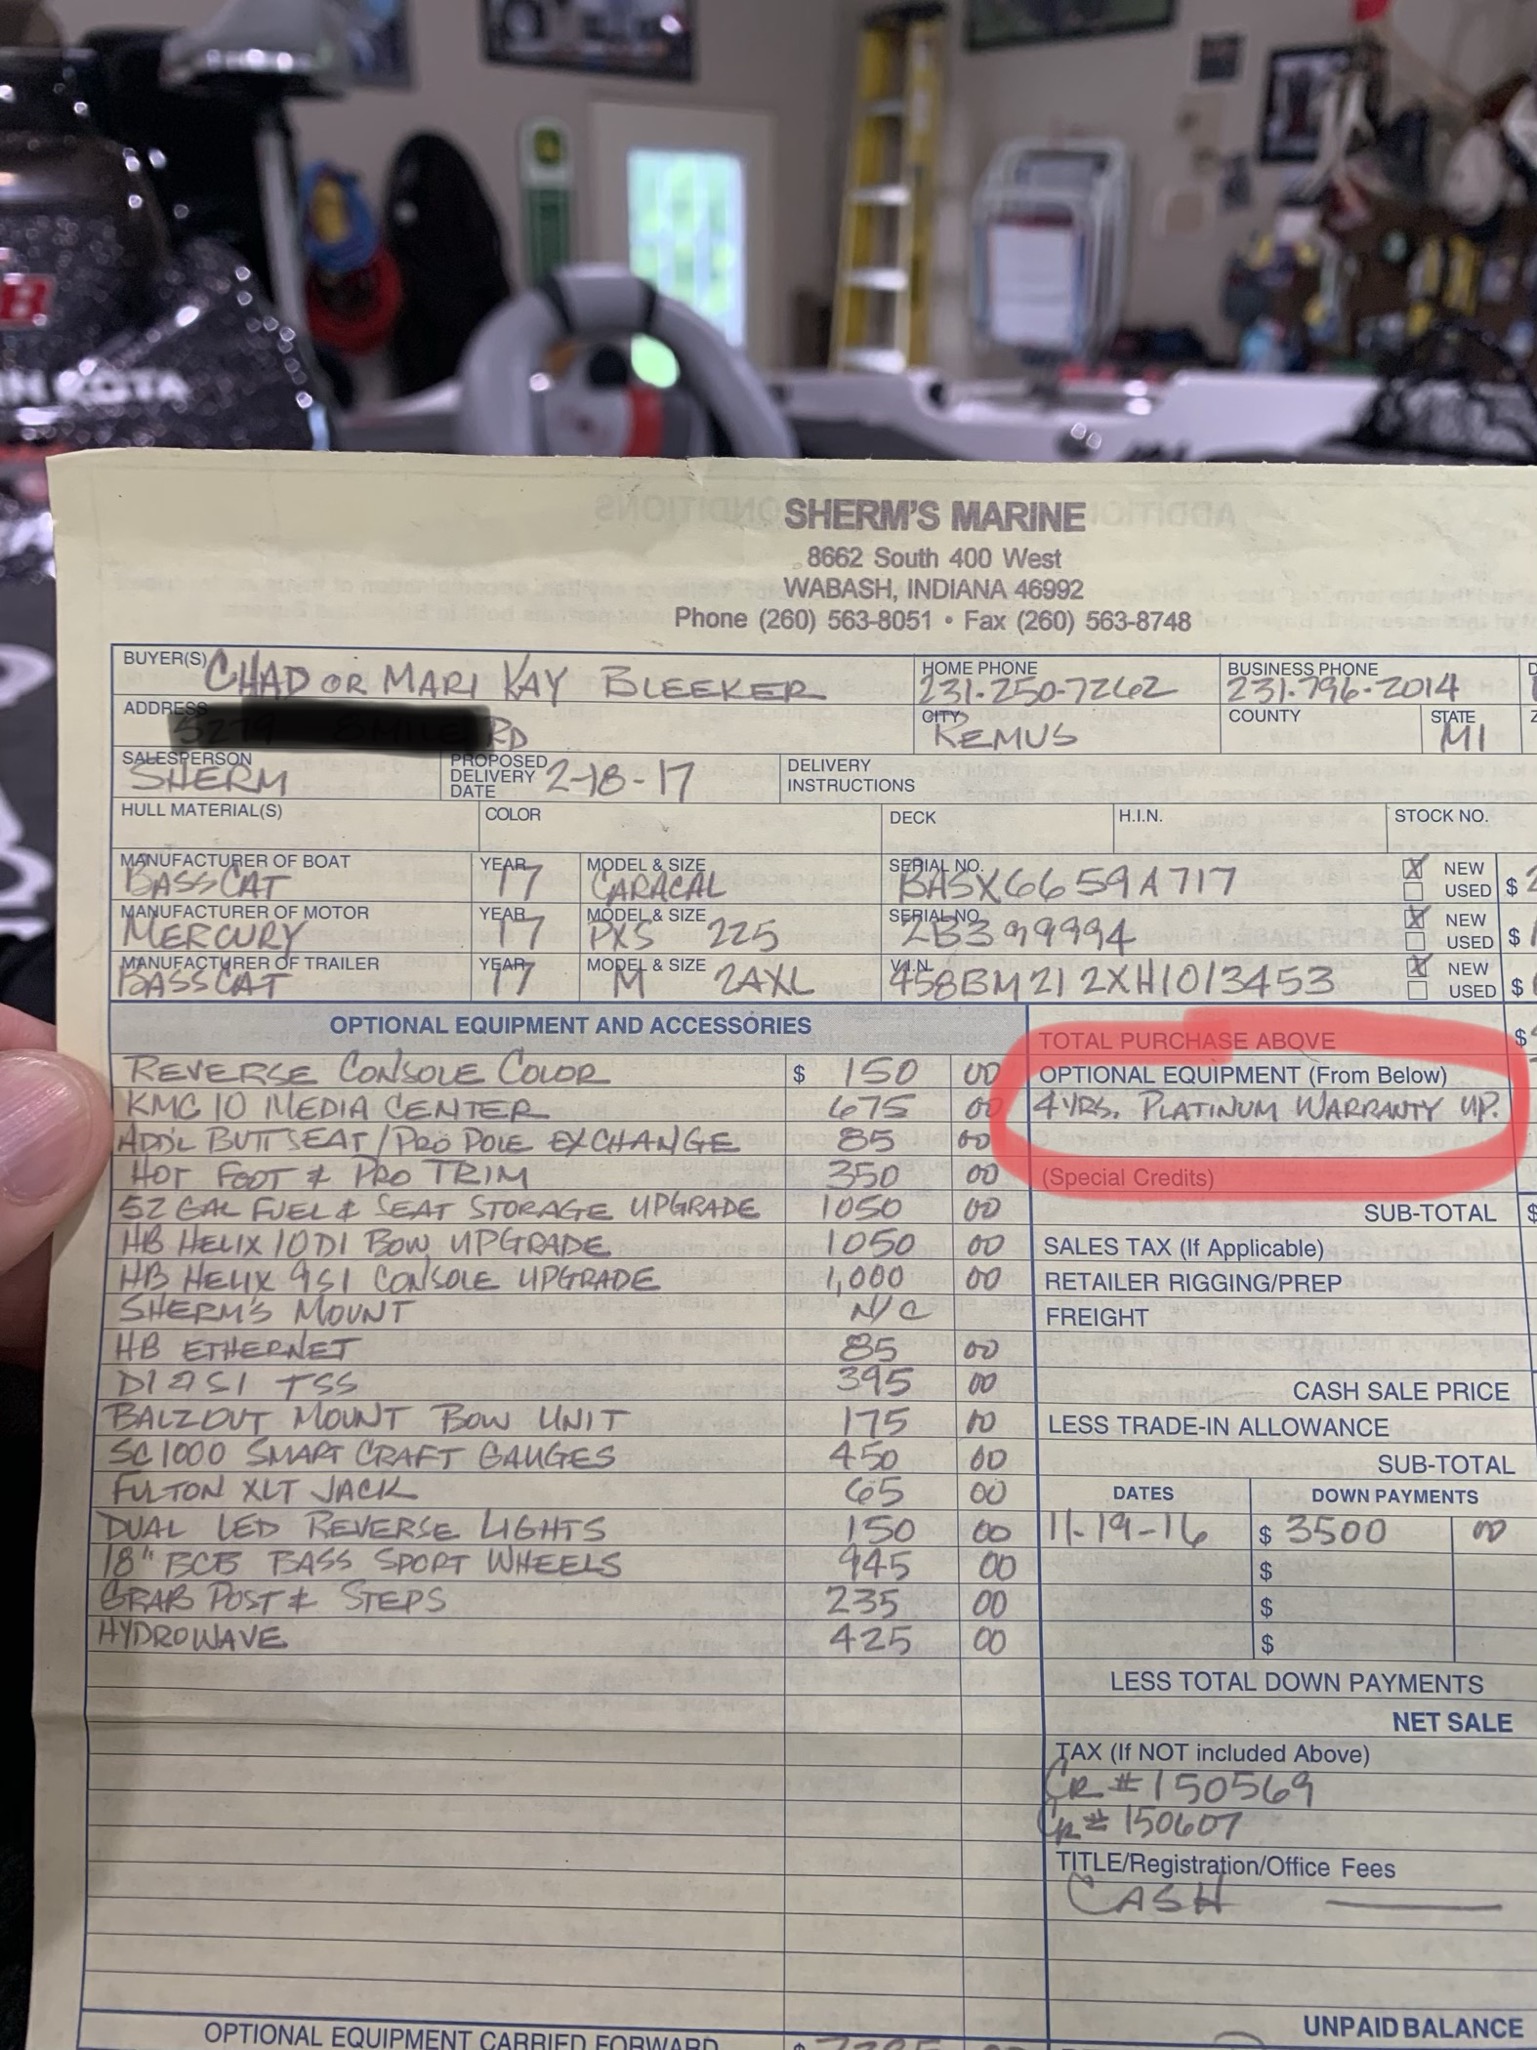 N KOTA
SHERM'S MARINE
8662 South 400 West
WABASH, INDIANA 46992
Phone (260) 563-8051 • Fax (260) 563-8748
BUYER(S) CHAD OR MARI KAY BLEEKER
HOME PHONE 231-250-7262
BUSINESS PHONE 231-796-2014
ADDRESS RD
CITY REMUS
COUNTY
STATE MI
SALESPERSON SHERM
PROPOSED DELIVERY DATE 2-18-17
DELIVERY INSTRUCTIONS
HULL MATERIAL(S) COLOR DECK H.I.N. STOCK NO.
MANUFACTURER OF BOAT BASSCAT YEAR 17 MODEL & SIZE CARACAL SERIAL NO. BASX6659A717 X NEW USED $
MANUFACTURER OF MOTOR MERCURY YEAR 17 MODEL & SIZE PXS 225 SERIAL NO. 2B399994 X NEW USED $
MANUFACTURER OF TRAILER BASSCAT YEAR 17 MODEL & SIZE M 2AXL V.I.N. 458BM212XH1013453 X NEW USED $
OPTIONAL EQUIPMENT AND ACCESSORIES
REVERSE CONSOLE COLOR $ 150 00
KMG 10 MEDIA CENTER 675 00
ADD'L BUTTSEAT/PRO POLE EXCHANGE 85 00
HOT FOOT & PRO TRIM 350 00
52 GAL FUEL & SEAT STORAGE UPGRADE 1050 00
HB HELIX 10DI BOW UPGRADE 1050 00
HB HELIX 9SI CONSOLE UPGRADE 1,000 00
SHERM'S MOUNT N/C
HB ETHERNET 85 00
TSS 395 00
BALZOUT MOUNT BOW UNIT 175 00
SC1000 SMART CRAFT GAUGES 450 00
FULTON XLT JACK 65 00
DUAL LED REVERSE LIGHTS 150 00
18" BCB BASS SPORT WHEELS 945 00
GRAB POST & STEPS 235 00
HYDROWAVE 425 00
OPTIONAL EQUIPMENT CARRIED FORWARD $
TOTAL PURCHASE ABOVE $
OPTIONAL EQUIPMENT (From Below)
4 YRS. PLATINUM WARRANTY UP.
(Special Credits)
SUB-TOTAL $
SALES TAX (If Applicable)
RETAILER RIGGING/PREP
FREIGHT
CASH SALE PRICE
LESS TRADE-IN ALLOWANCE
SUB-TOTAL
DATES DOWN PAYMENTS
11-19-16 $ 3500 00
$
$
$
LESS TOTAL DOWN PAYMENTS
NET SALE
TAX (If NOT included Above)
CR # 150569
CR # 150607
TITLE/Registration/Office Fees
CASH
UNPAID BALANCE